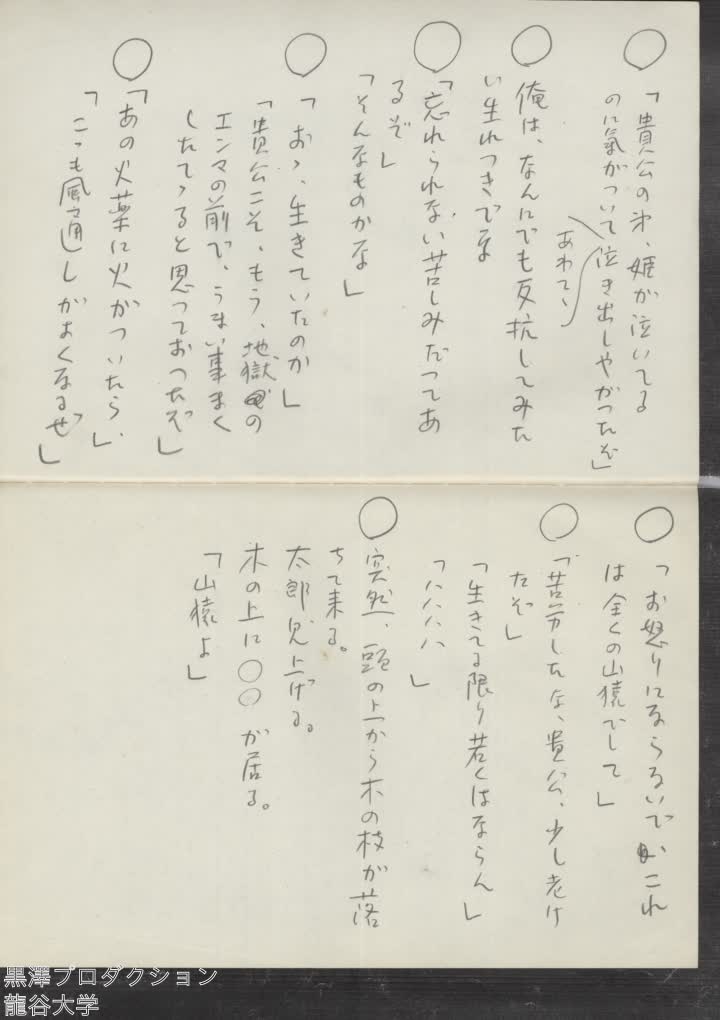 ○「貴公の弟、姫が泣いてる
のに氣がついて泣き出しやがつたぞ」
あわてゝ
○俺は、なんにでも反抗してみた
い生れつきでな
○「忘れられない苦しみだつてあ
るぞ」
「そんなものかな」
○「おゝ、生きていたのか」
「貴公こそ、もう、地獄の
エンマの前で、うまい事まく
したてゝると思っておったぞ」
○「あの火薬に火がついたら、」
「こつも風通しがよくなるぜ」
○「お怒りにならないで これ
は全くの山猿でして」
○「苦労したな、貴公、少し老け
たぞ」
「生きてる限り若くはならん」
「ハハハハ」
○突然、頭の上から木の枝が落
ちて来る。
太郎見上げる。
木の上に○○が居る。
「山猿よ」
黒澤プロダクション
龍谷大学